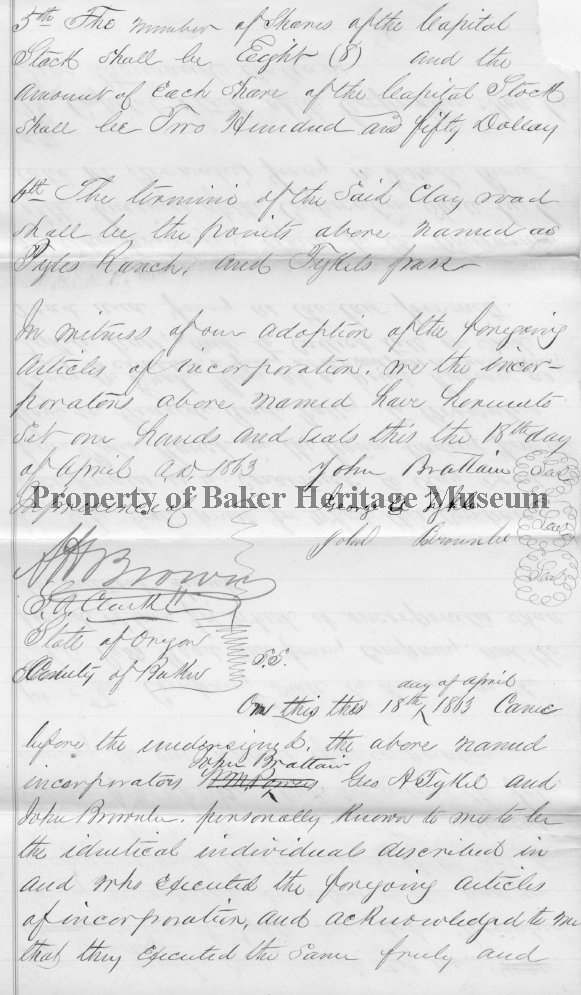 5th The number of Shares of the Capital
Stock shall be Eight (8) and the
amount of each share of the Capital Stock
shall be Two Hundred and fifty Dollars
6th The termini of the said Clay road
shall be the points above named as
Pyles Ranch, and Tykels
In witness of our adoption of the foregoing
Articles of incorporation. We the incor-
porators above named have hereunto
Set our hands and Seals this the 18th day
of April AD 1863 John Brattain Seal
Property of Baker Heritage Museum
In presence of George A Tykel Seal
John Brownlee Seal
A H Brown
State of Oregon
County of Baker S.S.
day of April
On this the 18th ^ 1863 Came
before the undersigned. the above named
John Brattain
incorporators ^ Geo A Tykel and
John Brownlee. personally known to me to be
the identical individuals described in
and who executed the foregoing articles
of incorporation, and acknowledged to me
that they executed the Same freely and